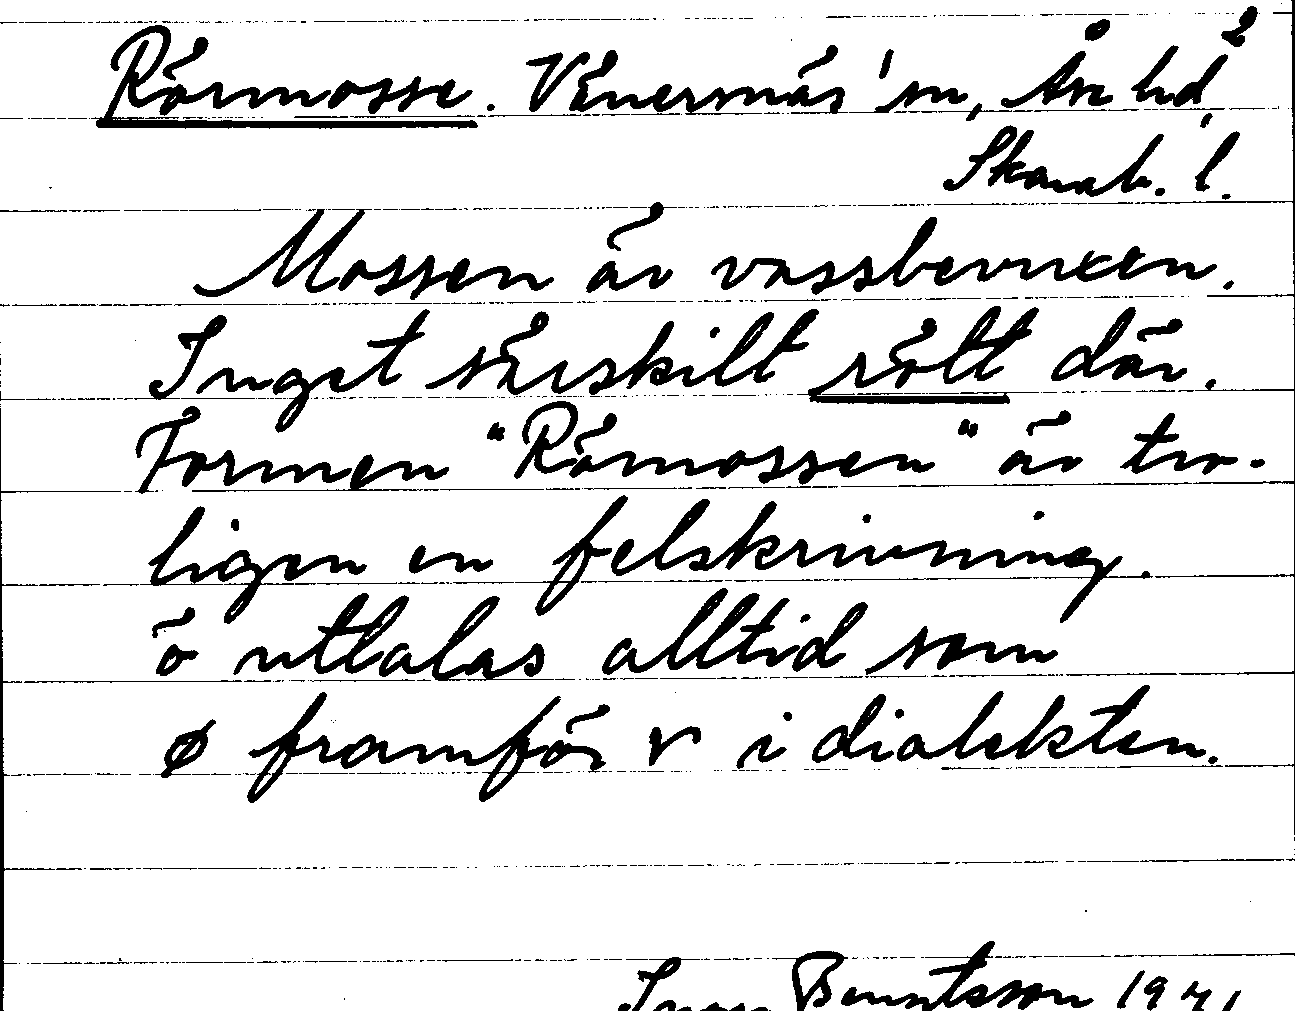 Rörmosse. Vänersnäs sn, Åse hd, 2
Skarab. l.
Mossen är vassbevuxen.
Inget särskilt rött där.
Formen "Römossen" är tro-
ligen en felskrivning.
ö uttalas alltid som
ø framför r i dialekten.
Bengtsson 1971